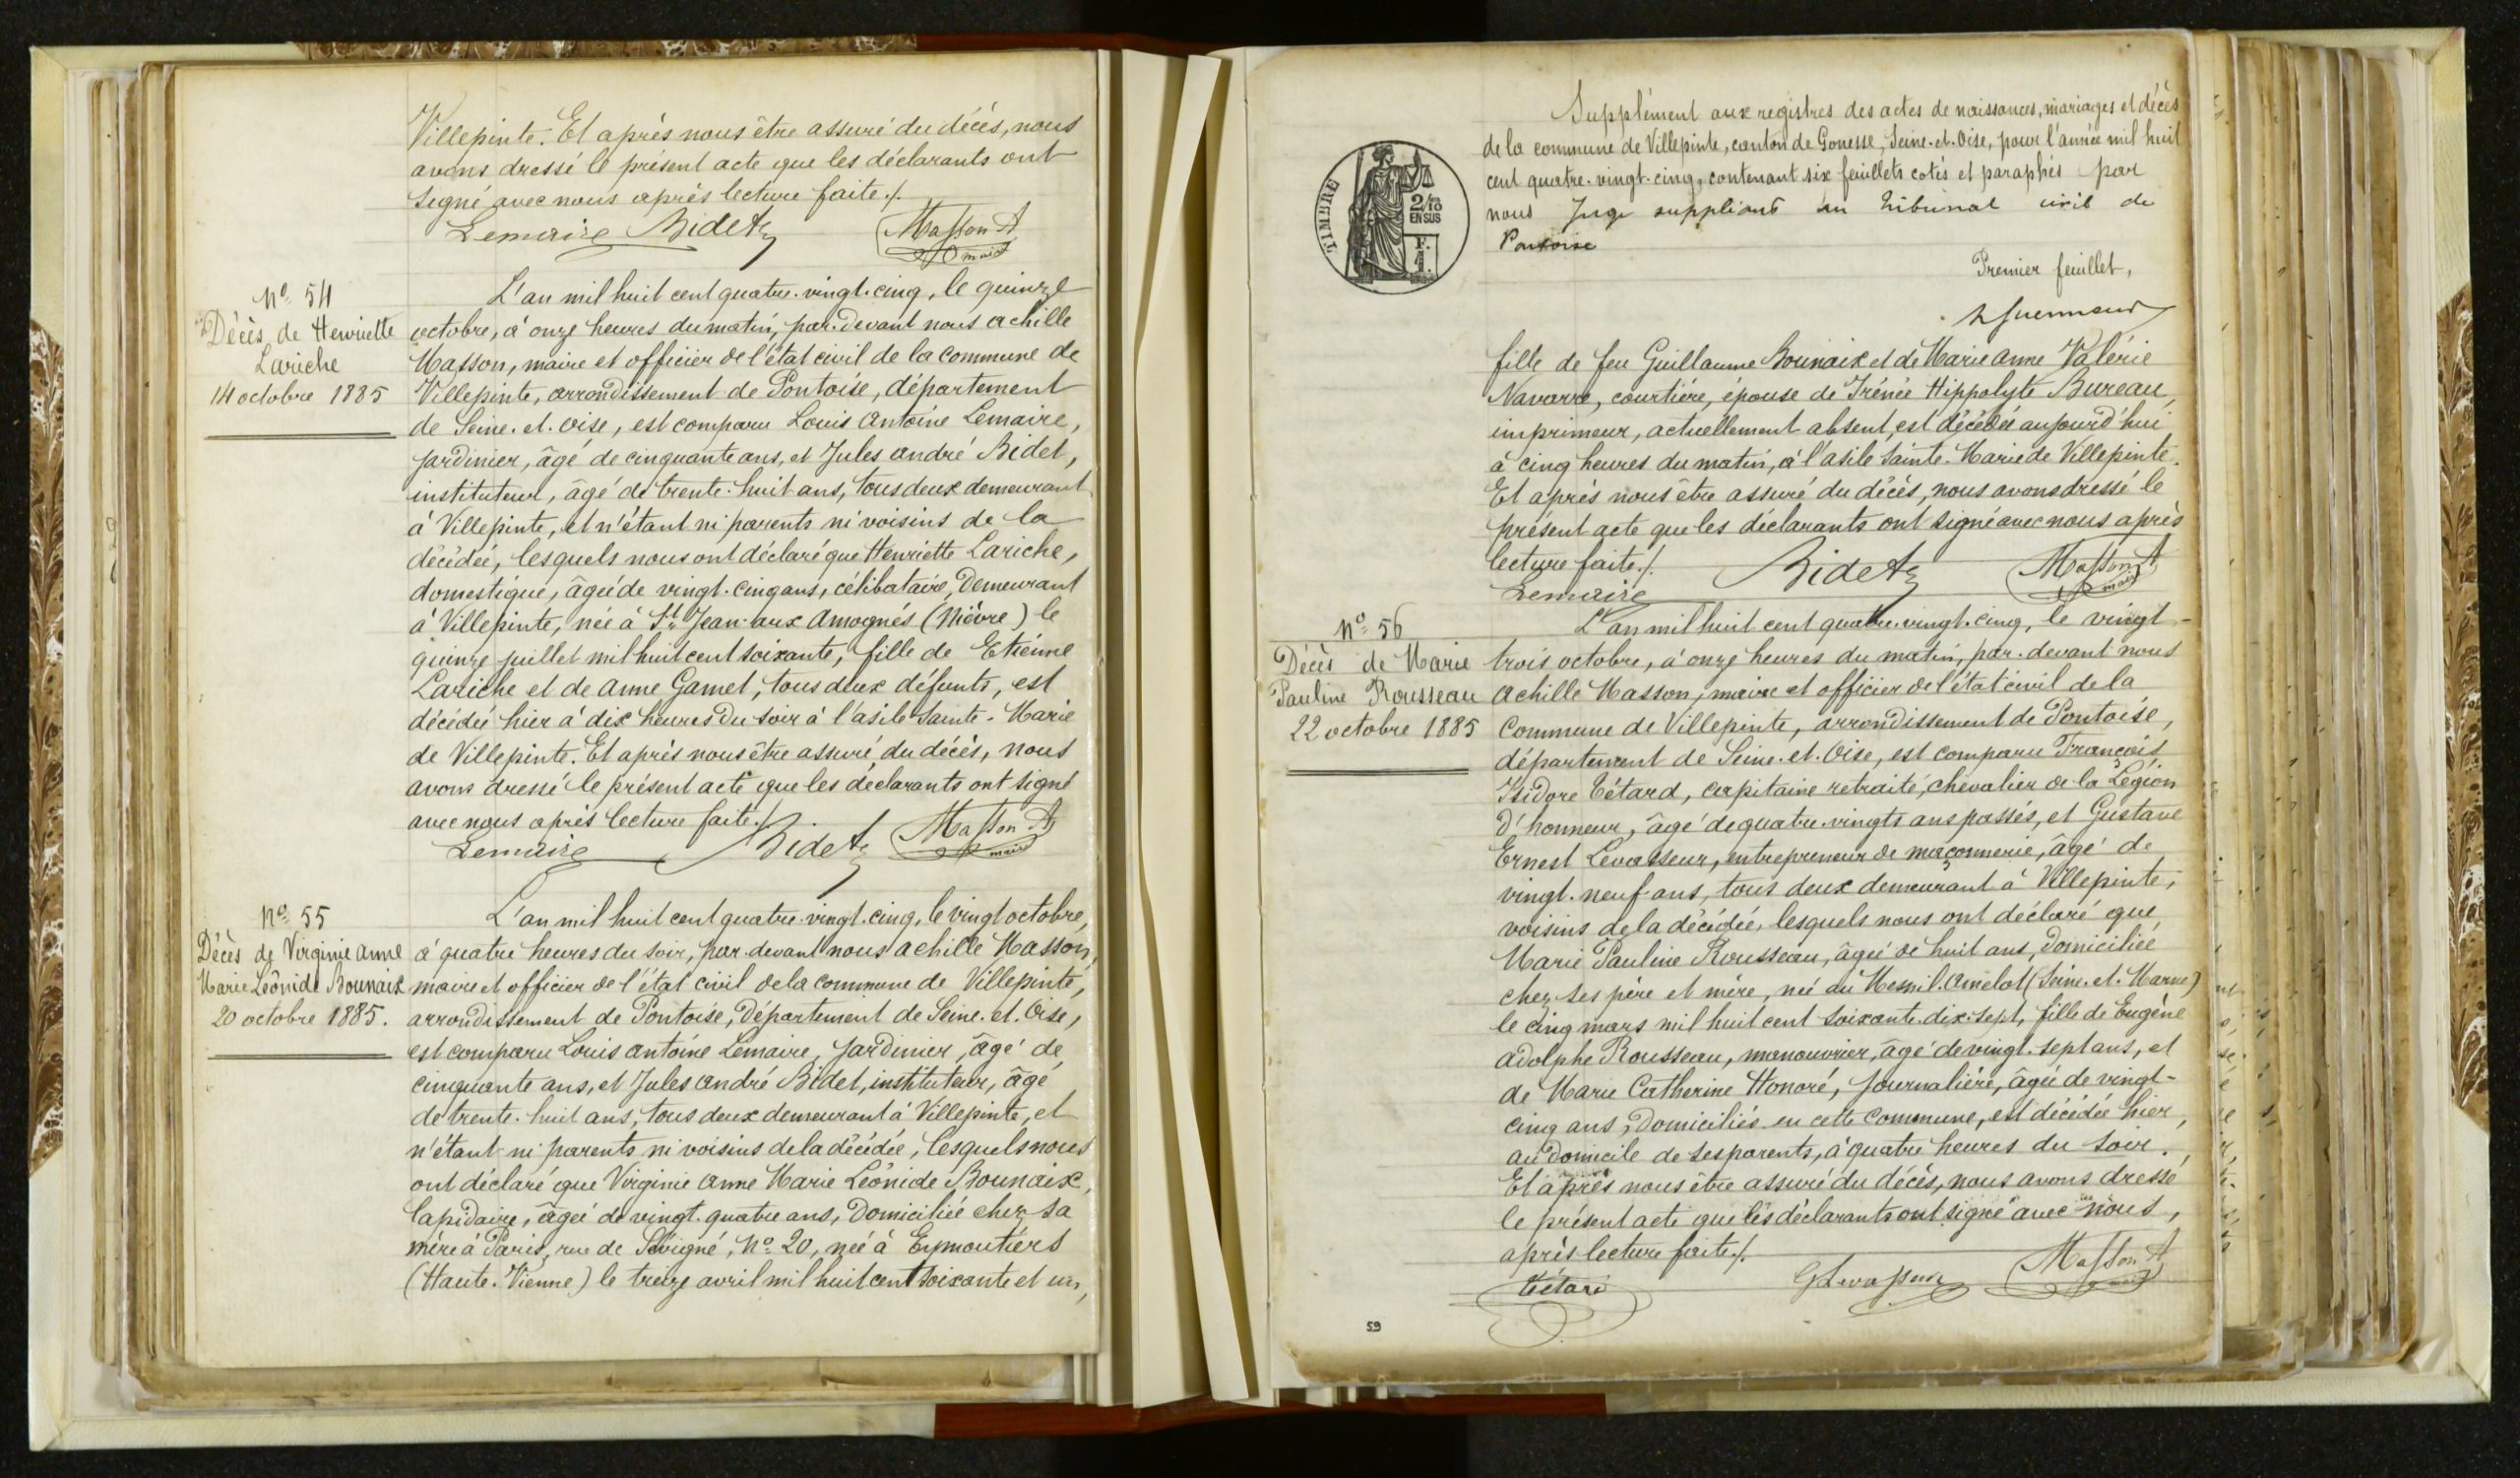 Villepinte. Et après nous être assuré du décès, nous
avons dressé le présent acte que les déclarants ont
signé avec nous après lecture faite./.
Lemaire Bidet Masson A
maire
N° 54
Décès de Henriette
Lariche
14 octobre 1885
L'an mil huit cent quatre-vingt-cinq, le quinze
octobre, à onze heures du matin, par-devant nous Achille
Masson, maire et officier de l'état civil de la commune de
Villepinte, arrondissement de Pontoise, département
de Seine-et-Oise, est comparu Louis Antoine Lemaire,
jardinier, âgé de cinquante ans, et Jules André Bidet,
instituteur, âgé de trente-huit ans, tous deux demeurant
à Villepinte, et n'étant ni parents ni voisins de la
décédée, lesquels nous ont déclaré que Henriette Lariche,
domestique, âgée de vingt-cinq ans, célibataire, demeurant
à Villepinte, née à St Jean-aux-Amognés (Nièvre) le
quinze juillet mil huit cent soixante, fille de Etienne
Lariche et de Anne Gamet, tous deux défunts, est
décédée hier à dix heures du soir à l'asile Sainte-Marie
de Villepinte. Et après nous être assuré du décès, nous
avons dressé le présent acte que les déclarants ont signé
avec nous après lecture faite./.
Lemaire Bidet Masson A
maire
N° 55
Décès de Virginie Anne
Marie Léonide Bounaix
20 octobre 1885.
L'an mil huit cent quatre-vingt-cinq, le vingt octobre,
à quatre heures du soir, par-devant nous Achille Masson,
maire et officier de l'état civil de la commune de Villepinte,
arrondissement de Pontoise, département de Seine-et-Oise,
est comparu Louis Antoine Lemaire, jardinier, âgé de
cinquante ans, et Jules André Bidet, instituteur, âgé
de trente-huit ans, tous deux demeurant à Villepinte, et
n'étant ni parents ni voisins de la décédée, lesquels nous
ont déclaré que Virginie Anne Marie Léonide Bounaix,
lapidaire, âgée de vingt-quatre ans, domiciliée chez sa
mère à Paris, rue de Sévigné, N° 20, née à Eymoutiers
(Haute-Vienne) le treize avril mil huit cent soixante et un,
Supplément aux registres des actes de naissances, mariages et décès
de la commune de Villepinte, canton de Gonesse, Seine-et-Oise, pour l'année mil huit
cent quatre-vingt-cinq, contenant six feuillets cotés et paraphés par
nous Juge suppléant au tribunal civil de
Pontoise
TIMBRE
2/10
EN SUS
Premier feuillet,
fille de feu Guillaume Bounaix et de Marie Anne Valérie
Navarre, courtière, épouse de Irénée Hippolyte Bureau,
imprimeur, actuellement absent, est décédée aujourd'hui
à cinq heures du matin, à l'asile Sainte-Marie de Villepinte.
Et après nous être assuré du décès, nous avons dressé le
présent acte que les déclarants ont signé avec nous après
lecture faite./.
Lemaire Bidet Masson A
maire
N° 56
Décès de Marie
Pauline Rousseau
22 octobre 1885
L'an mil huit cent quatre-vingt-cinq, le vingt-
trois octobre, à onze heures du matin, par-devant nous
Achille Masson, maire et officier de l'état civil de la
commune de Villepinte, arrondissement de Pontoise,
département de Seine-et-Oise, est comparu François
Isidore Tétard, capitaine retraité, chevalier de la Légion
d'honneur, âgé de quatre-vingts ans passés, et Gustave
Ernest Levasseur, entrepreneur de maçonnerie, âgé de
vingt-neuf ans, tous deux demeurant à Villepinte,
voisins de la décédée, lesquels nous ont déclaré que
Marie Pauline Rousseau, âgée de huit ans, domiciliée
chez ses père et mère, née au Mesnil-Amelot (Seine-et-Marne)
le cinq mars mil huit cent soixante-dix-sept, fille de Eugène
Adolphe Rousseau, manouvrier, âgé de vingt-sept ans, et
de Marie Catherine Honoré, journalière, âgée de vingt-
cinq ans, domiciliés en cette commune, est décédée hier,
au domicile de ses parents, à quatre heures du soir.
Et après nous être assuré du décès, nous avons dressé
le présent acte que les déclarants ont signé avec nous,
après lecture faite./.
Tétard G Levasseur Masson A
maire
59